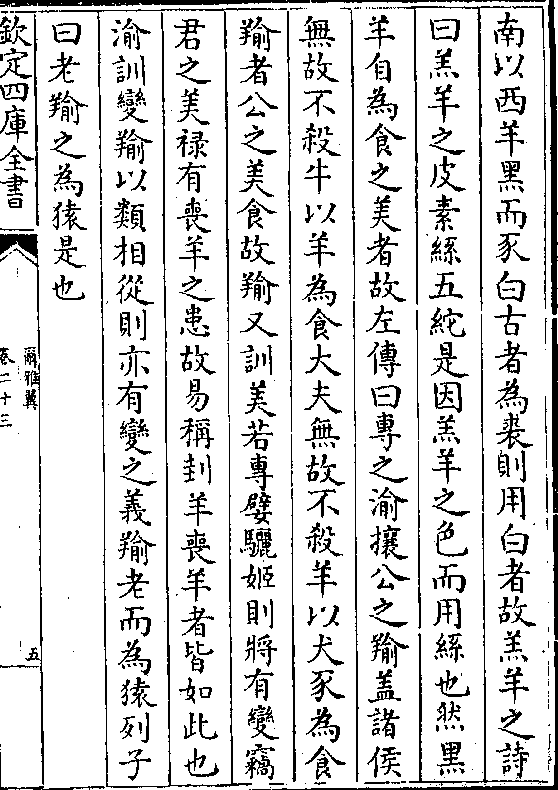 南以西羊黑而豕白古者為裘則用白者故羔羊之詩
曰羔羊之皮素絲五紽是因羔羊之色而用絲也然黑
羊自為食之美者故左傳曰專之渝攘公之羭蓋諸侯
無故不殺牛以羊為食大夫無故不殺羊以犬豕為食
羭者公之美食故羭又訓美若專嬖驪姬則將有變竊
君之美禄有喪羊之患故易稱刲羊喪羊者皆如此也
渝訓變羭以類相從則亦有變之義羭老而為猿列子
曰老羭之為猿是也
欽定四庫全書
爾雅翼
卷二十三
五